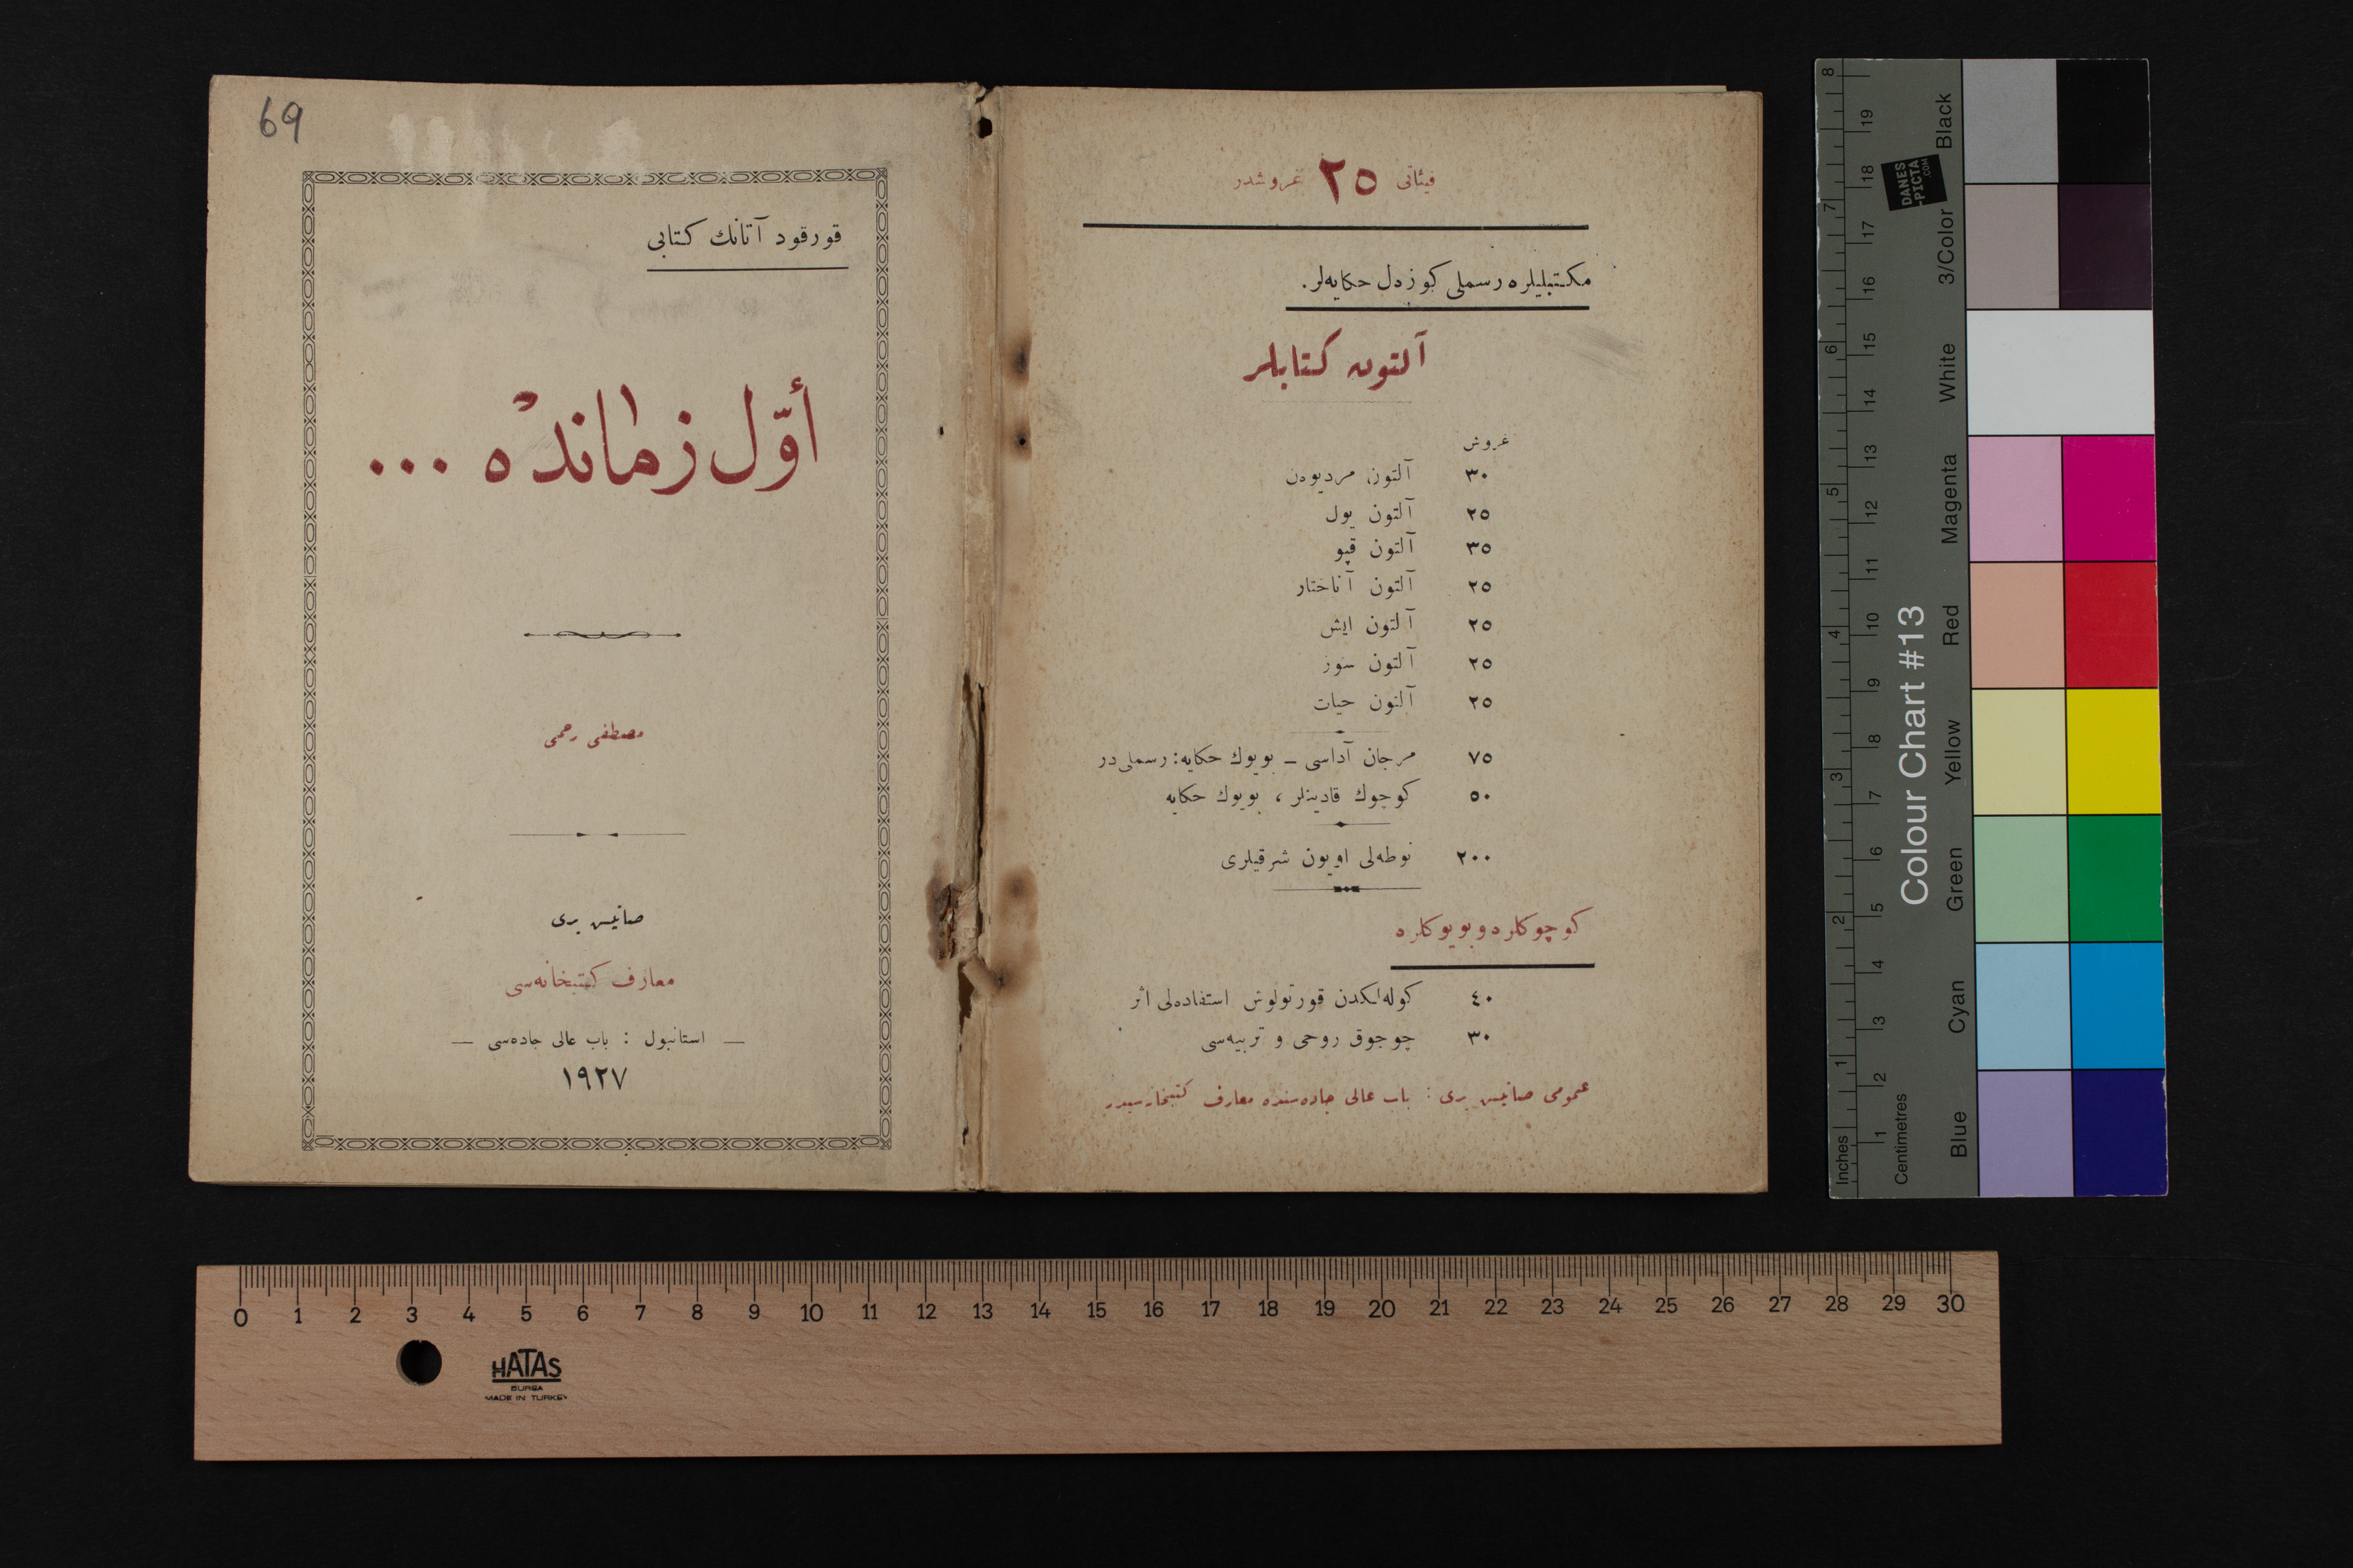 69
قورقود آتانك كتابى
أوّل زمانده ...
مصطفى رحمى
صاتيس يرى
معارف كتبخانه‌سى
— استانبول : باب عالى جاده‌سى —
١٩٢٧
فيئاتى ٢٥ غروشدر
مكتبليلره رسملى كوزه‌ل حكايه‌لر.
آلتون كتابلر
غروش
٣٠ آلتون مرديوه‌ن
٢٥ آلتون يول
٣٥ آلتون قپو
٢٥ آلتون آناختار
٢٥ آلتون ايش
٢٥ آلتون سوز
٢٥ آلتون حيات
٧٥ مرجان آداسى — بويوك حكايه: رسملى‌در
٥٠ كوچوك قادينلر ، بويوك حكايه
٢٠٠ نوطه‌لى اويون شرقيلرى
كوچوكلره و بويوكلره
٤٠ كوله‌لكدن قورتولوش استفاده‌لى اثر
٣٠ چوجوق روحى و تربيه‌سى
عمومى صاتيس يرى : باب عالى جاده‌سنده معارف كتبخانه‌سيدر
HATAS
BURSA
MADE IN TURKEY
0 1 2 3 4 5 6 7 8 9 10 11 12 13 14 15 16 17 18 19 20 21 22 23 24 25 26 27 28 29 30
Colour Chart #13
DANES
-PICTA
.COM
Inches 1 2 3 4 5 6 7 8
Centimetres 1 2 3 4 5 6 7 8 9 10 11 12 13 14 15 16 17 18 19
Blue Cyan Green Yellow Red Magenta White 3/Color Black